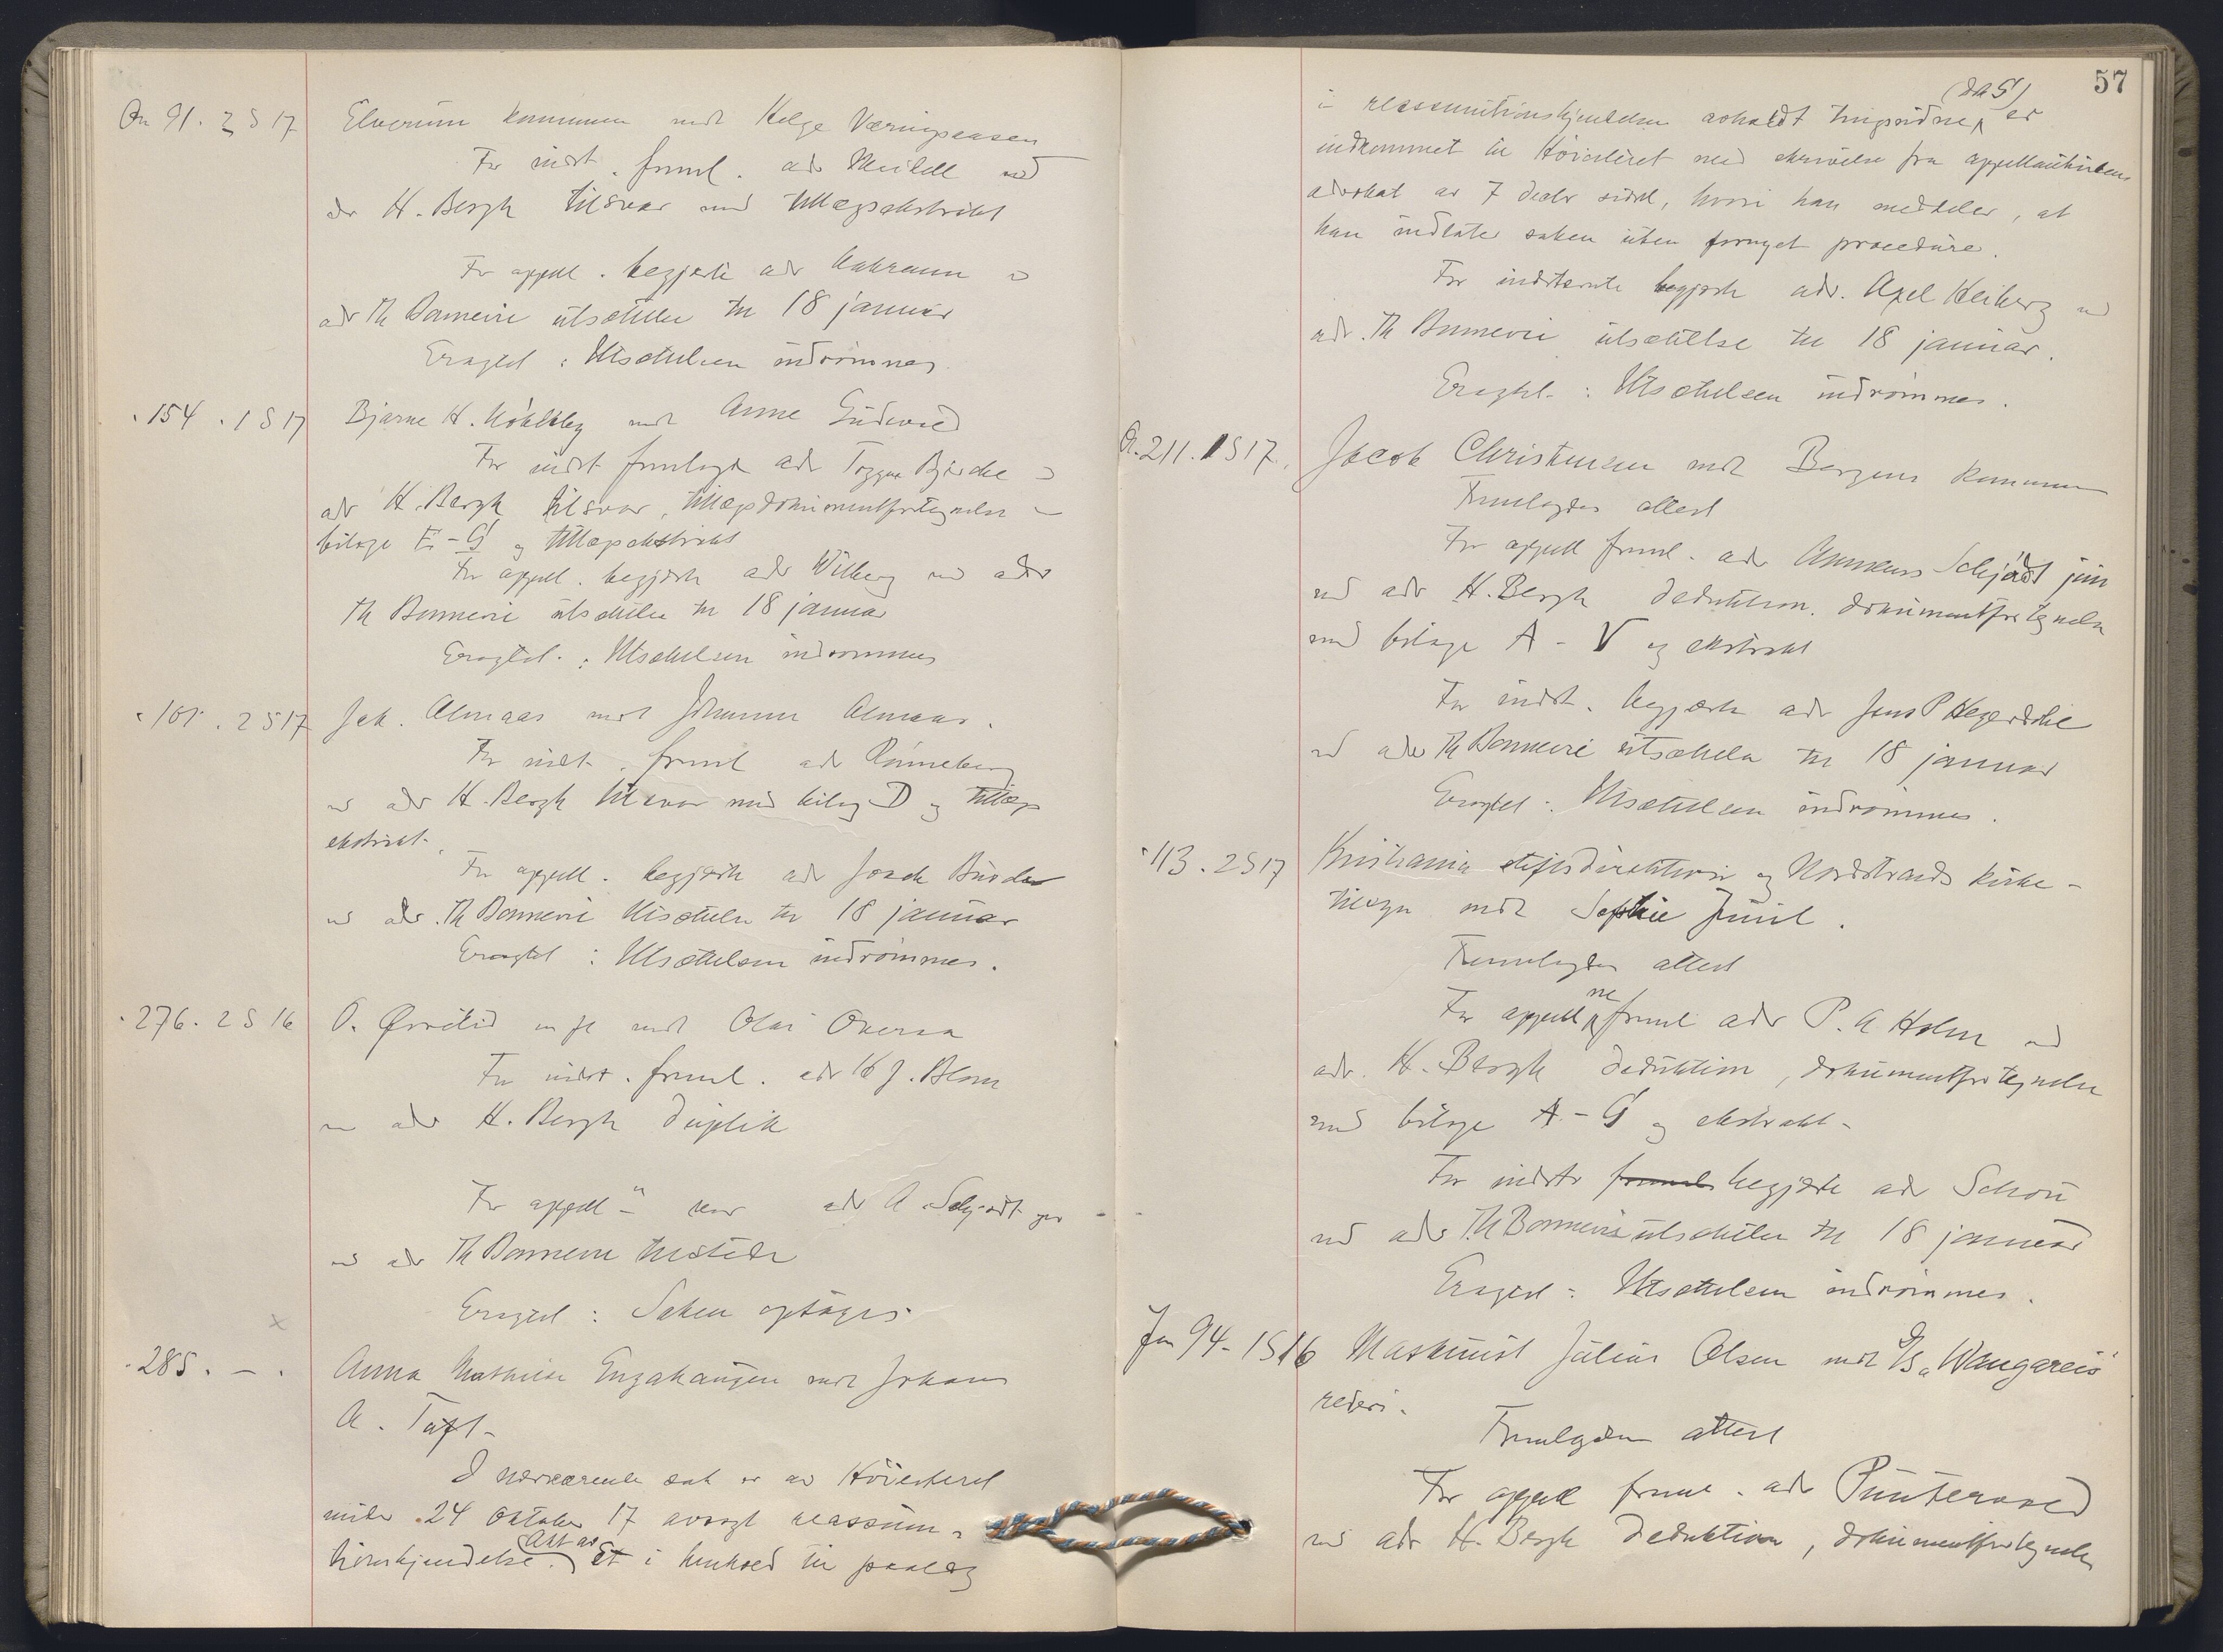 An 91. 2 S 17 Elverum kommune mot Helge Væringsaasen
For indst. freml. adv Meidell ved
adv H. Bergh tilsvar med tillægsekstrakt
For appell. begjærte adv
adv Th Bonnevie utsættelse til 18 januar
Eragtet: Utsættelsen indrömmes.
" 154. 1 S 17 Bjarne H. mot Anne Gudevold
For indst fremlagde adv Trygve Bjercke
adv H. Bergh tilsvar, tillægsdokumentfortegnelse
bilage E - G og tillægsekstrakt
For appell. begjærte adv Wilberg ved adv
Th Bonnevie utsættelse til 18 januar
Eragtet: Utsættelsen indrömmes
2 S 17 Joh. Almaas mot Johanne Almaas.
For indst. freml adv Rönneberg
ved adv H. Bergh tilsvar med bilag D og tillægs
ekstrakt.
For appell. begjærte adv
ved adv. Th Bonnevie Utsættelse til 18 januar
Eragtet: Utsættelsen indrömmes.
" 276. 2 S 16 O. m fl mot Olai
For indst. freml. adv K J. Blom
ved adv H. Bergh duplik
For appell - var adv A. Schjødt
ved adv Th Bonnevie tilstede
Eragtet: Saken optages.
x
" 285. - . Anna Mathilde Engahaugen mot Johan
A. Tuft.
I nærværende sak er av Höiesteret
under 24 oktober 17 avsagt reassum-
tionskjendelse. (Akt av) Et i henhold til paalæg
57
i reassumtionskjendelsen avholdt tingsvidne (da G) er
indkommet til Höiesteret med skrivelse fra appellantinden
advokat av 7 decbr sidstl, hvori han meddeler, at
han indlater saken uten fornyet procedure.
For indstevnte begjærte adv. Axel Heiberg ved
adv. Th Bonnevie utsættelse til 18 januar.
Eragtet: Utsættelsen indrömmes.
A. 211. 1 S 17. Jacob Christensen mot Bergens kommune
Fremlagdes attest
For appell freml. adv Annæus Schjødt jun
ved adv H. Bergh deduktion. dokumentfortegnelse
med bilage A - V og ekstrakt
For indst. begjærte adv Jens P Heyerdahl
ved adv Th Bonnevie utsættelse til 18 januar
Eragtet: Utsættelsen indrömmes.
" 113. 2 S 17 Kristiania stiftsdirektion og Nordstrands kirke-
tilsyn mot Sophie Juul.
Fremlagdes attest
For appellne freml adv P. A Holm ved
adv. H. Bergh deduktion, dokumentfortegnelse
med bilage A - G og ekstrakt -
For indst freml begjærte adv Schou
ved adv Th Bonnevie utsættelse til 18 januar
Eragtet: Utsættelsen indrömmes.
Jan 94 - 1 S 16 Maskinist Julius Olsen mot D/S "Wangareis"
rederi.
Fremlagdes attest
For appell freml. adv Puntervold
ved adv H. Bergh deduktion, dokumentfortegnelse